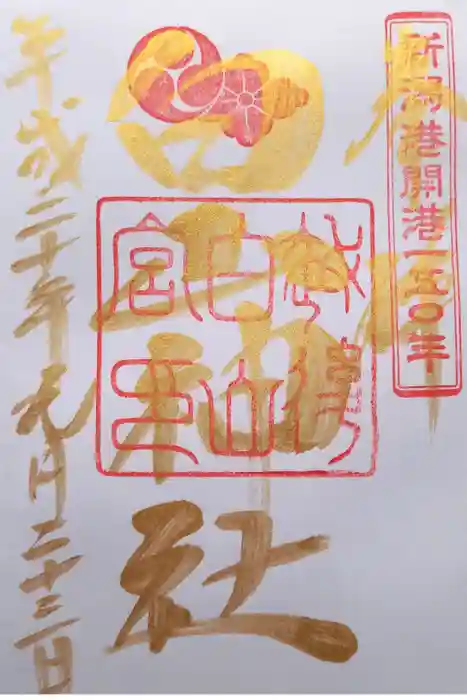 新潟港開港一五〇年
奉拝
白山神社
越後
白山
宮印
平成三十年九月二十三日